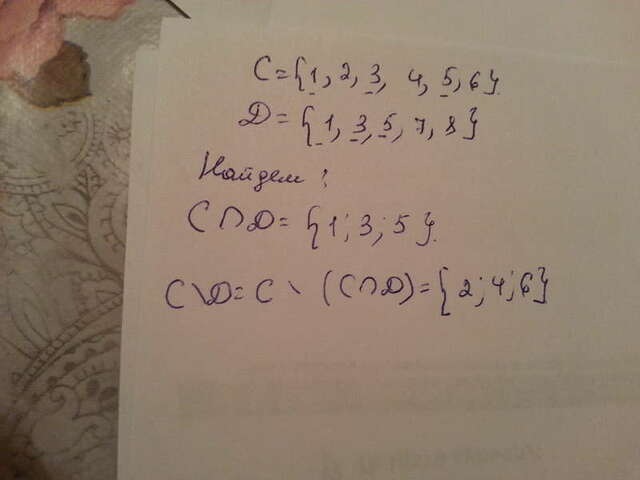 C={1, 2, 3, 4, 5, 6}.
D={1, 3, 5, 7, 8}
Найдем:
C∩D={1; 3; 5}.
C\D=C \ (C∩D)={2; 4; 6}